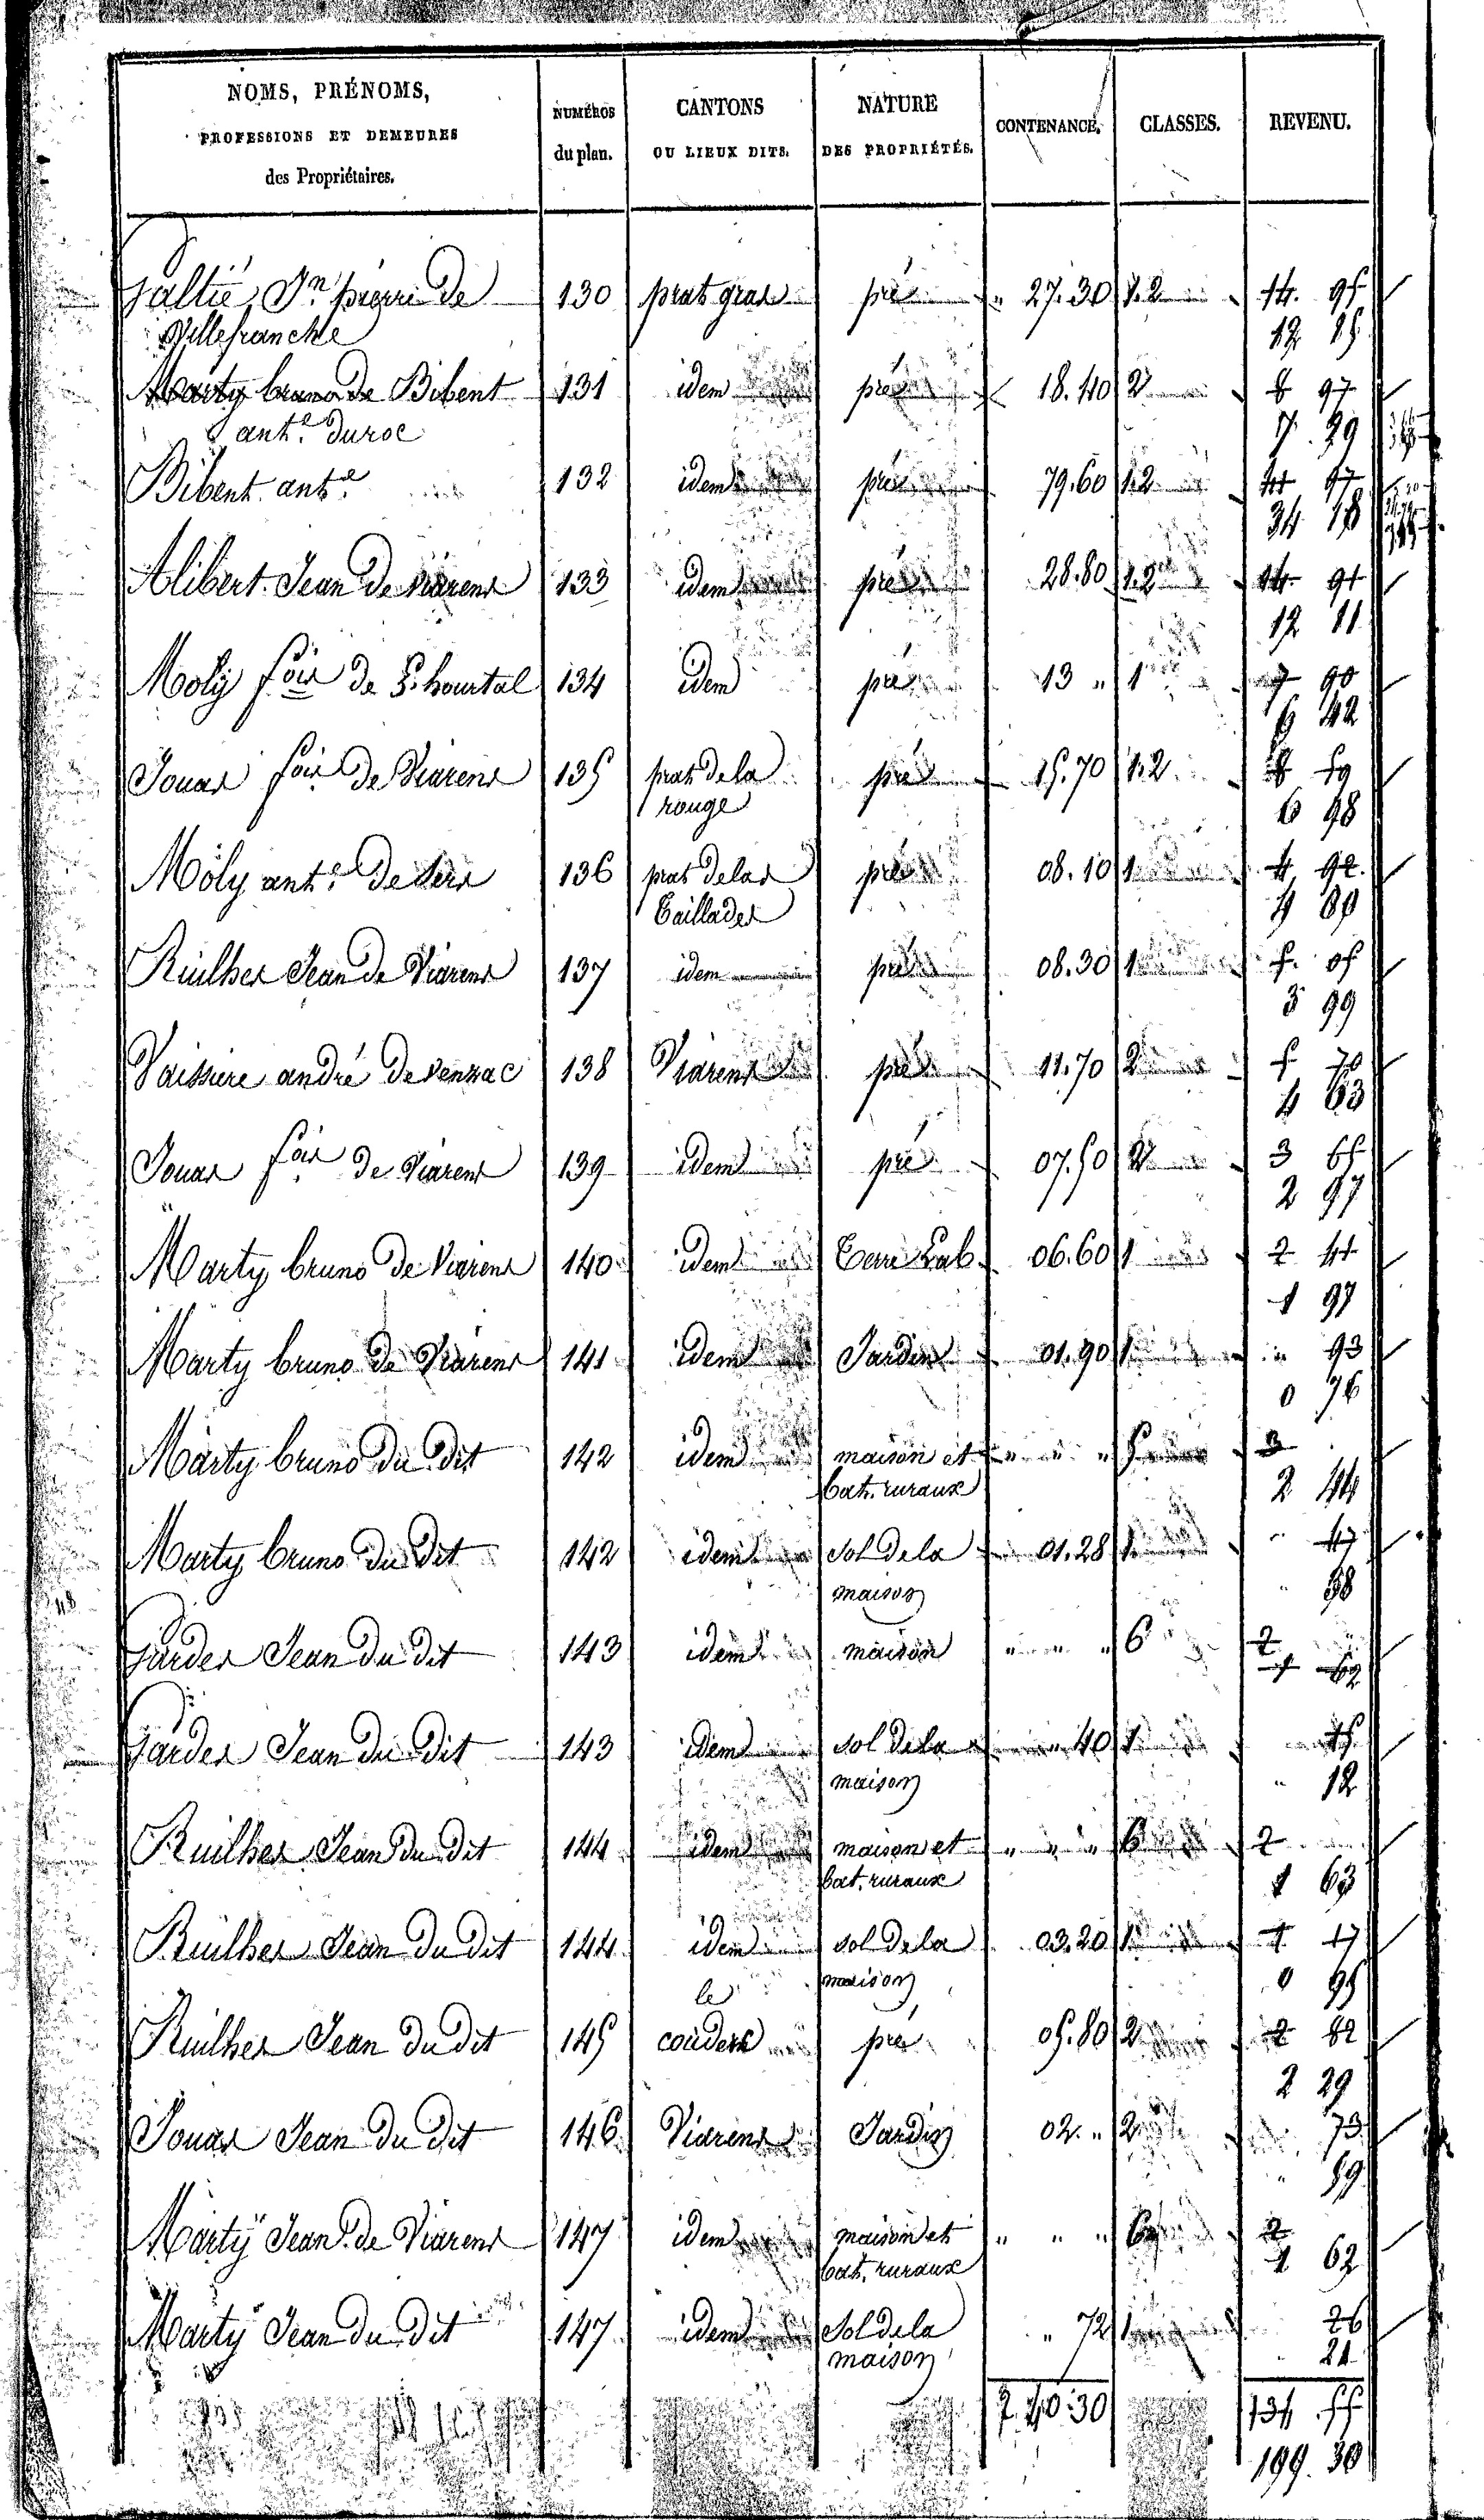 NOMS, PRÉNOMS,
PROFESSIONS ET DEMEURES
des Propriétaires.
NUMÉROS
du plan.
CANTONS
OU LIEUX DITS.
NATURE
DES PROPRIÉTÉS.
CONTENANCE.
CLASSES.
REVENU.
galtié Jn pierre de 130 prat gras pré 27.30 1.2 14. 95
Villefranche 12 15
Marty bruno de Bibent 131 idem pré 18.40 2 8 97
ante duroc 7. 29
Bibent ante 132 idem pré 79.60 1.2 97
34 18
Alibert Jean de Viarens 133 idem pré 28.80 1.2 14 91
12 11
Moly fois de hourtal 134 idem pré 13 " 1 7 90
6 42
Jouas fois de Viarens 135 prat de la pré 15.70 1.2 8 59
rouge 6 98
Moly ante de 136 prat delas pré 08.10 1 4 92
Taillades
Ruilhes Jean de Viarens 137 idem pré 08.30 1 5. 05
3 99
Vaissiere andré de venzac 138 Viarens pré 11.70 2 5 70
4 63
Jouas fois de Viarens 139 idem pré 07.50 2 3 65
2 97
Marty bruno de Viarens 140 idem Terre Lab. 06.60 1 2 41
1 97
Marty bruno de Viarens 141 idem Jardin 01.90 1 " 93
0 76
Marty bruno du dit 142 idem maison et " " " 5 3
bat. ruraux 2 44
Marty bruno du dit 142 idem sol de la 01.28 1 " 47
maison " 38
gardes Jean du dit 143 idem maison " " " 6 2
1 62
gardes Jean du dit 143 idem sol de la " 40 1 15
maison " 12
Ruilhes Jean du dit 144 idem maison et " " " 6 2
bat. ruraux 1 63
Ruilhes Jean du dit 144 idem sol de la 03.20 1 1 17
maison 0 95
le
Ruilhes Jean du dit 145 couderc pré 05.80 2 2 82
2 29
Jouas Jean du dit 146 Viarens Jardin 02. " 2 73
" 59
Marty Jean de Viarens 147 idem maison et " " " 6 2
bat. ruraux 1 62
Marty Jean du dit 147 idem Sol de la " 72 1 26
maison " 21
2.40.30 134 55
30